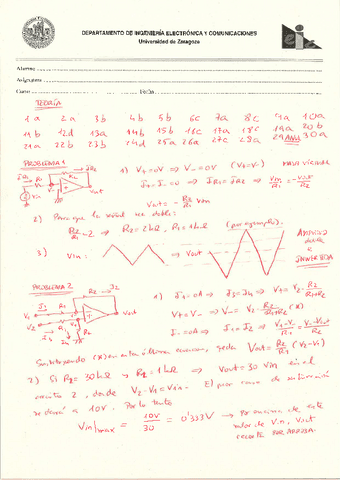 DEPARTAMENTO DE INGENIERÍA ELECTRÓNICA Y COMUNICACIONES
Universidad de Zaragoza
Alumno
Asignatura
Curso Fecha
TEORÍA
1a 2a 3b 4b 5b 6c 7a 8c 9a 10a
11b 12d 13a 14b 15b 16c 17a 18c 19a 20b
21a 22b 23b 24d 25a 26a 27c 28a 29 30a
PROBLEMA 1
1) V+=0V ⇒ V-=0V (V+=V-) MASA VIRTUAL
I+=I-=0 ⇒ IR1=IR2 ⇒ Vin/R1 = -Vout/R2
Vout = -R2/R1 Vin
2) Para que la señal se doble:
R2/R1=2 → R2=2kΩ, R1=1kΩ (por ejemplo).
3) Vin: ⇒ Vout
PROBLEMA 2
1) I+=0A ⇒ I3=I4 ⇒ V+=V2 R2/(R1+R2)
V+=V- ⇒ V-=V2 R2/(R1+R2) (*)
I-=0A ⇒ I1=I2 ⇒ (V1-V-)/R1=(V--Vout)/R2
Sustituyendo (*) en esta última ecuación, queda Vout=R2/R1 (V2-V1)
2) Si R2=30kΩ y R1=1kΩ ⇒ Vout=30 Vin en el
circuito 2, donde V2-V1=Vin.
se deberá a 10V. Por lo tanto
Vin|max = 10V/30 = 0'333V → Por encima de este
valor de Vin, Vout